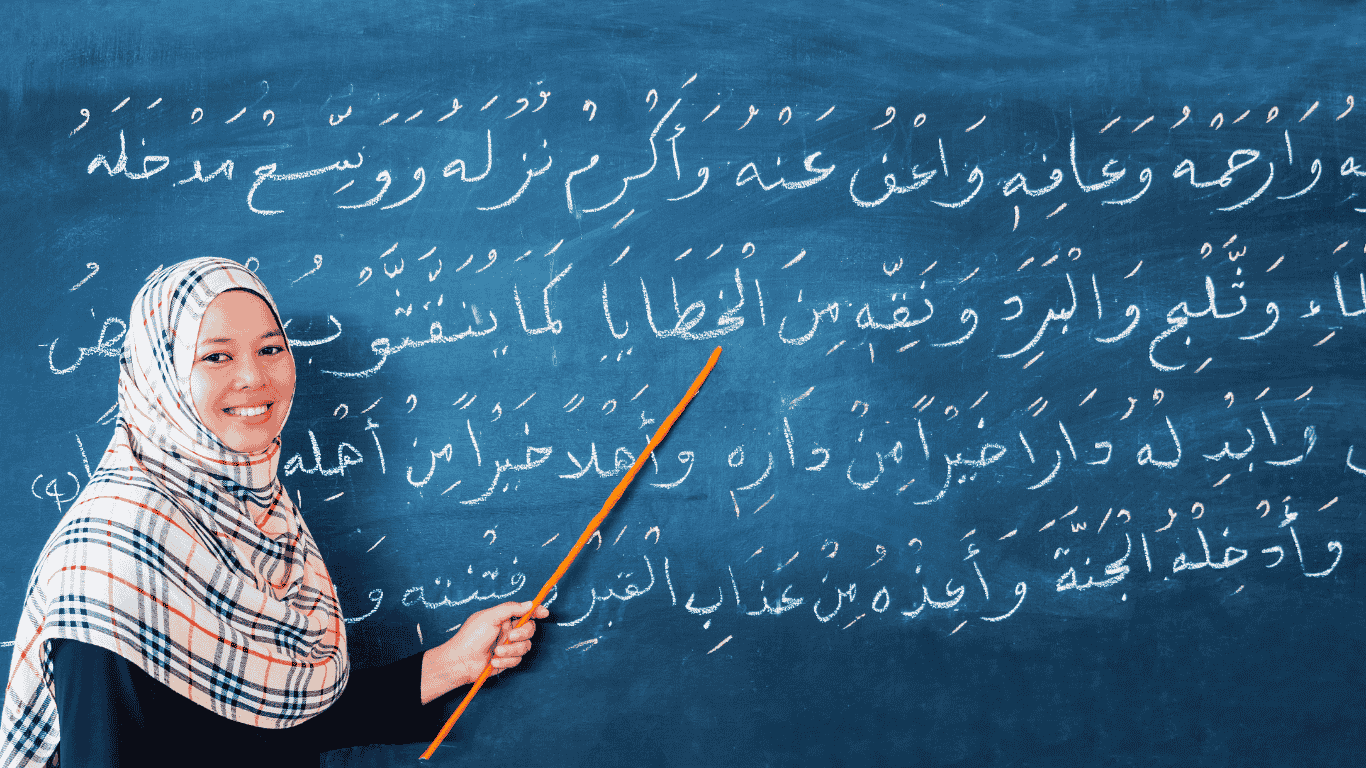 وَارْحَمْهُ وَعَافِهِ وَاعْفُ عَنْهُ وَأَكْرِمْ نُزُلَهُ وَوَسِّعْ مُدْخَلَهُ
وَثَّلْجِ وَالْبَرَدِ وَنَقِّهِ مِنَ الْخَطَايَا كَمَا
وَابَدِ لْهُ دَارًا خَيْرًا مِنْ دَارِهِ وَأَهْلًا خَيْرًا مِنْ أَهْلِهِ
وَأَدْخِلْهُ الْجَنَّةَ وَأَعِذْهُ مِنْ عَذَابِ الْقَبْرِ وَفِتْنَتِهِ وَ